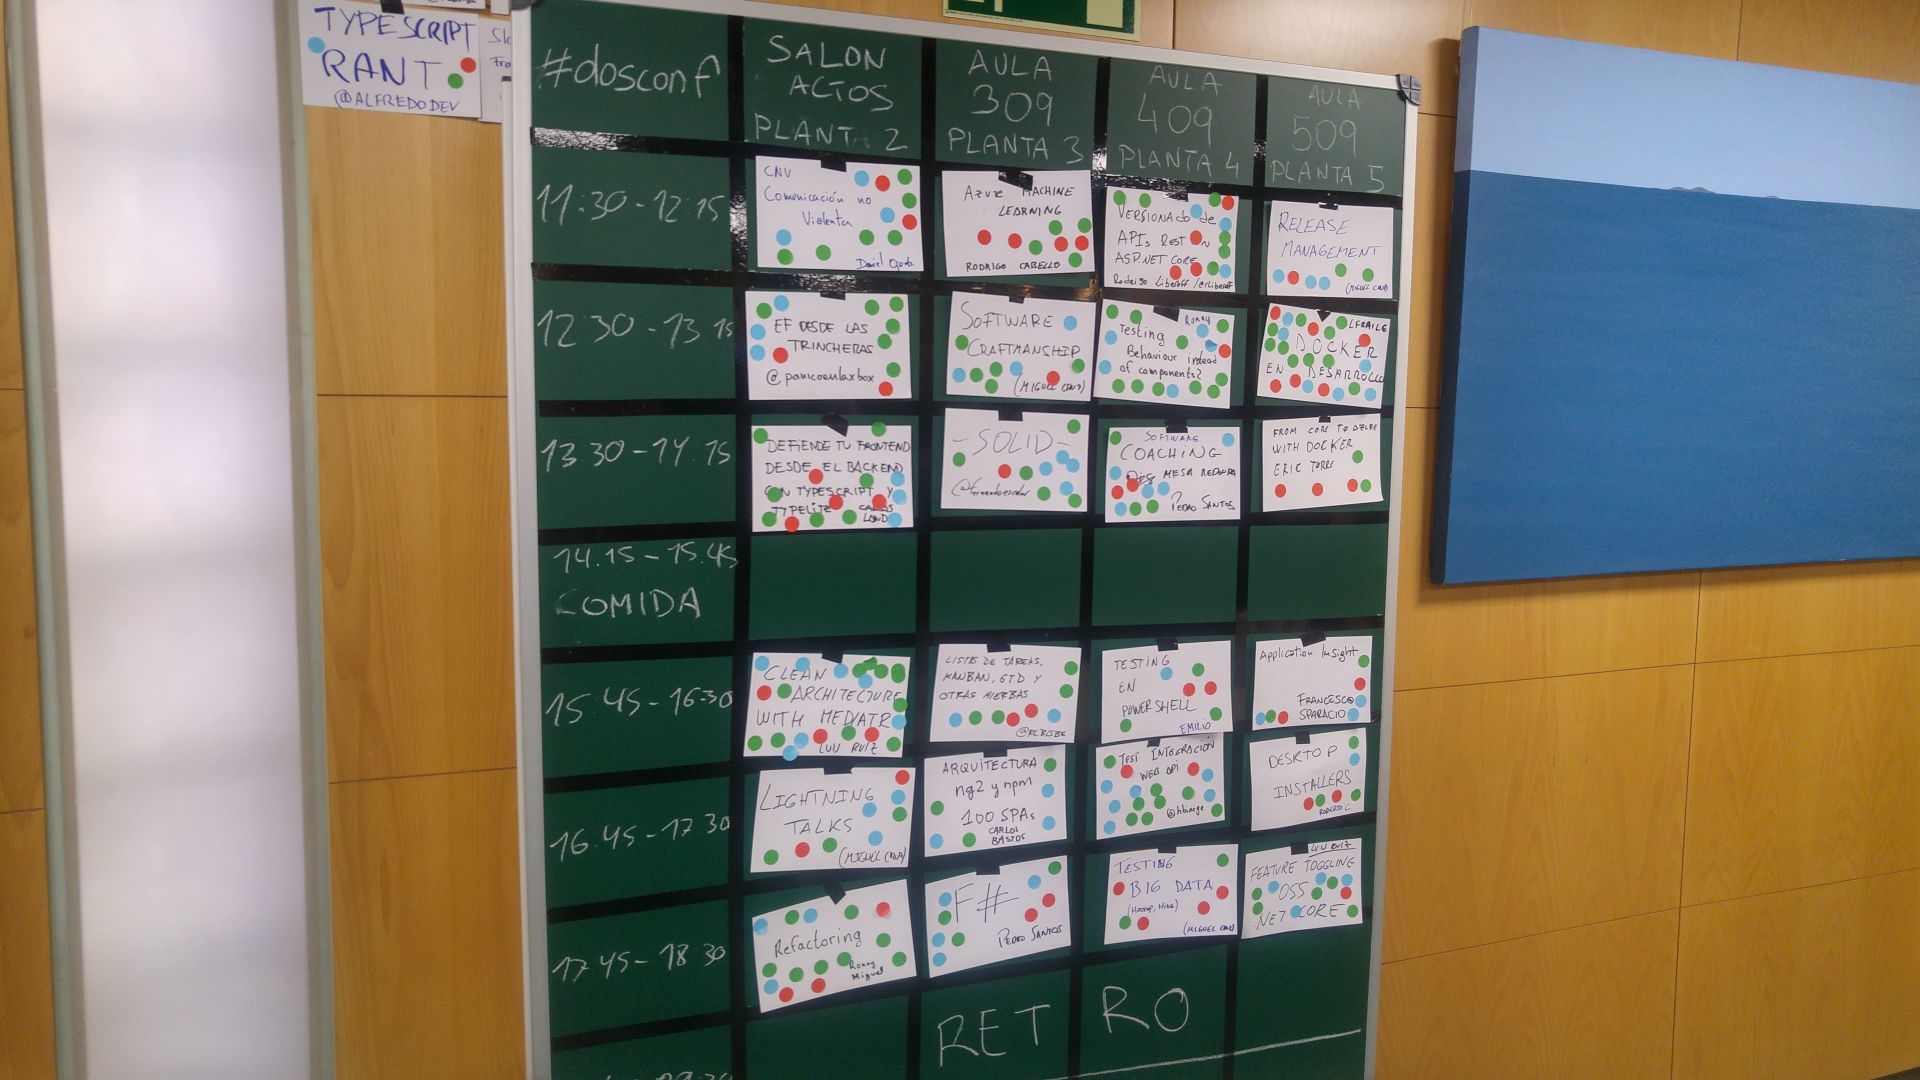 TYPESCRIPT
RANT
@ALFREDODEV
#dosconf
SALON
ACTOS
PLANT 2
AULA
309
PLANTA 3
AULA
409
PLANTA 4
AULA
509
PLANTA 5
11:30 - 12:15
CNV
Comunicación no
Violenta
Daniel
AZURE MACHINE
LEARNING
RODRIGO CABELLO
VERSIONADO de
APIs REST EN
ASP.NET CORE
Rodrigo Liberoff /@rliberoff
RELEASE
MANAGEMENT
(MIGUEL
12 30 - 13 15
EF DESDE LAS
TRINCHERAS
@panicoenlaxbox
SOFTWARE
CRAFTMANSHIP
(MIGUEL
Ronny
Testing
Behaviour instead
of components?
LFRAILE
DOCKER
EN DESARROLLO
13 30 - 14.15
DEFIENDE TU FRONTEND
DESDE EL BACKEND
CON TYPESCRIPT Y
TYPELITE CARLOS
LAND
- SOLID -
SOFTWARE
COACHING
MESA REDONDA
PEDRO SANTOS
FROM CORE TO AZURE
WITH DOCKER
ERIC TORRE
14.15 - 15.45
COMIDA
15.45 - 16:30
CLEAN
ARCHITECTURE
WITH MEDIATR
LUIS RUIZ
LISTAS DE TAREAS,
KANBAN, GTD Y
OTRAS HIERBAS
@ELBISBE
TESTING
EN
POWERSHELL
EMILIO
Application Insight
FRANCESCO
SPARACIO
16.45 - 17 30
LIGHTNING
TALKS
(MIGUEL
ARQUITECTURA
ng2 y npm
100 SPAs
CARLOS
BASTOS
TEST INTEGRACIÓN
WEB API
@hbiarge
DESKTOP
INSTALLERS
ROBERTO C.
17 45 - 18 30
Refactoring
Ronny
Miguel
F#
PEDRO SANTOS
TESTING
BIG DATA
(HADOOP, HIVE)
(MIGUEL
LUIS RUIZ
FEATURE TOGGLING
OSS
.NET CORE
RETRO